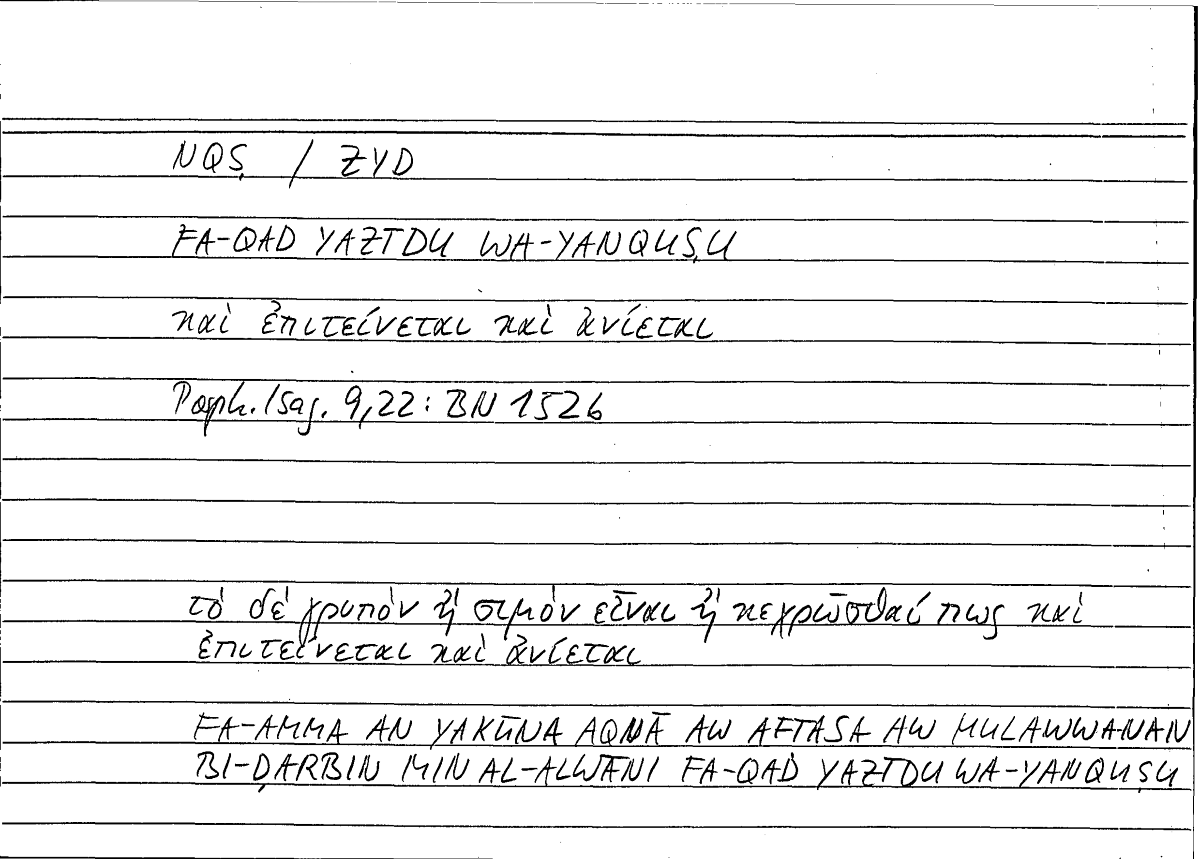 NQṢ / ZYD
FA-QAD YAZĪDU WA-YANQUṢU
καὶ ἐπιτείνεται καὶ ἀνίεται
Porph. Isag. 9,22: BN 152b
τὸ δὲ γρυπὸν ἢ σιμὸν εἶναι ἢ κεχρῶσθαί πως καὶ
ἐπιτείνεται καὶ ἀνίεται
FA-AMMA AN YAKŪNA AQNĀ AW AFTASA AW MULAWWANAN
BI-ḌARBIN MIN AL-ALWĀNI FA-QAD YAZĪDU WA-YANQUṢU